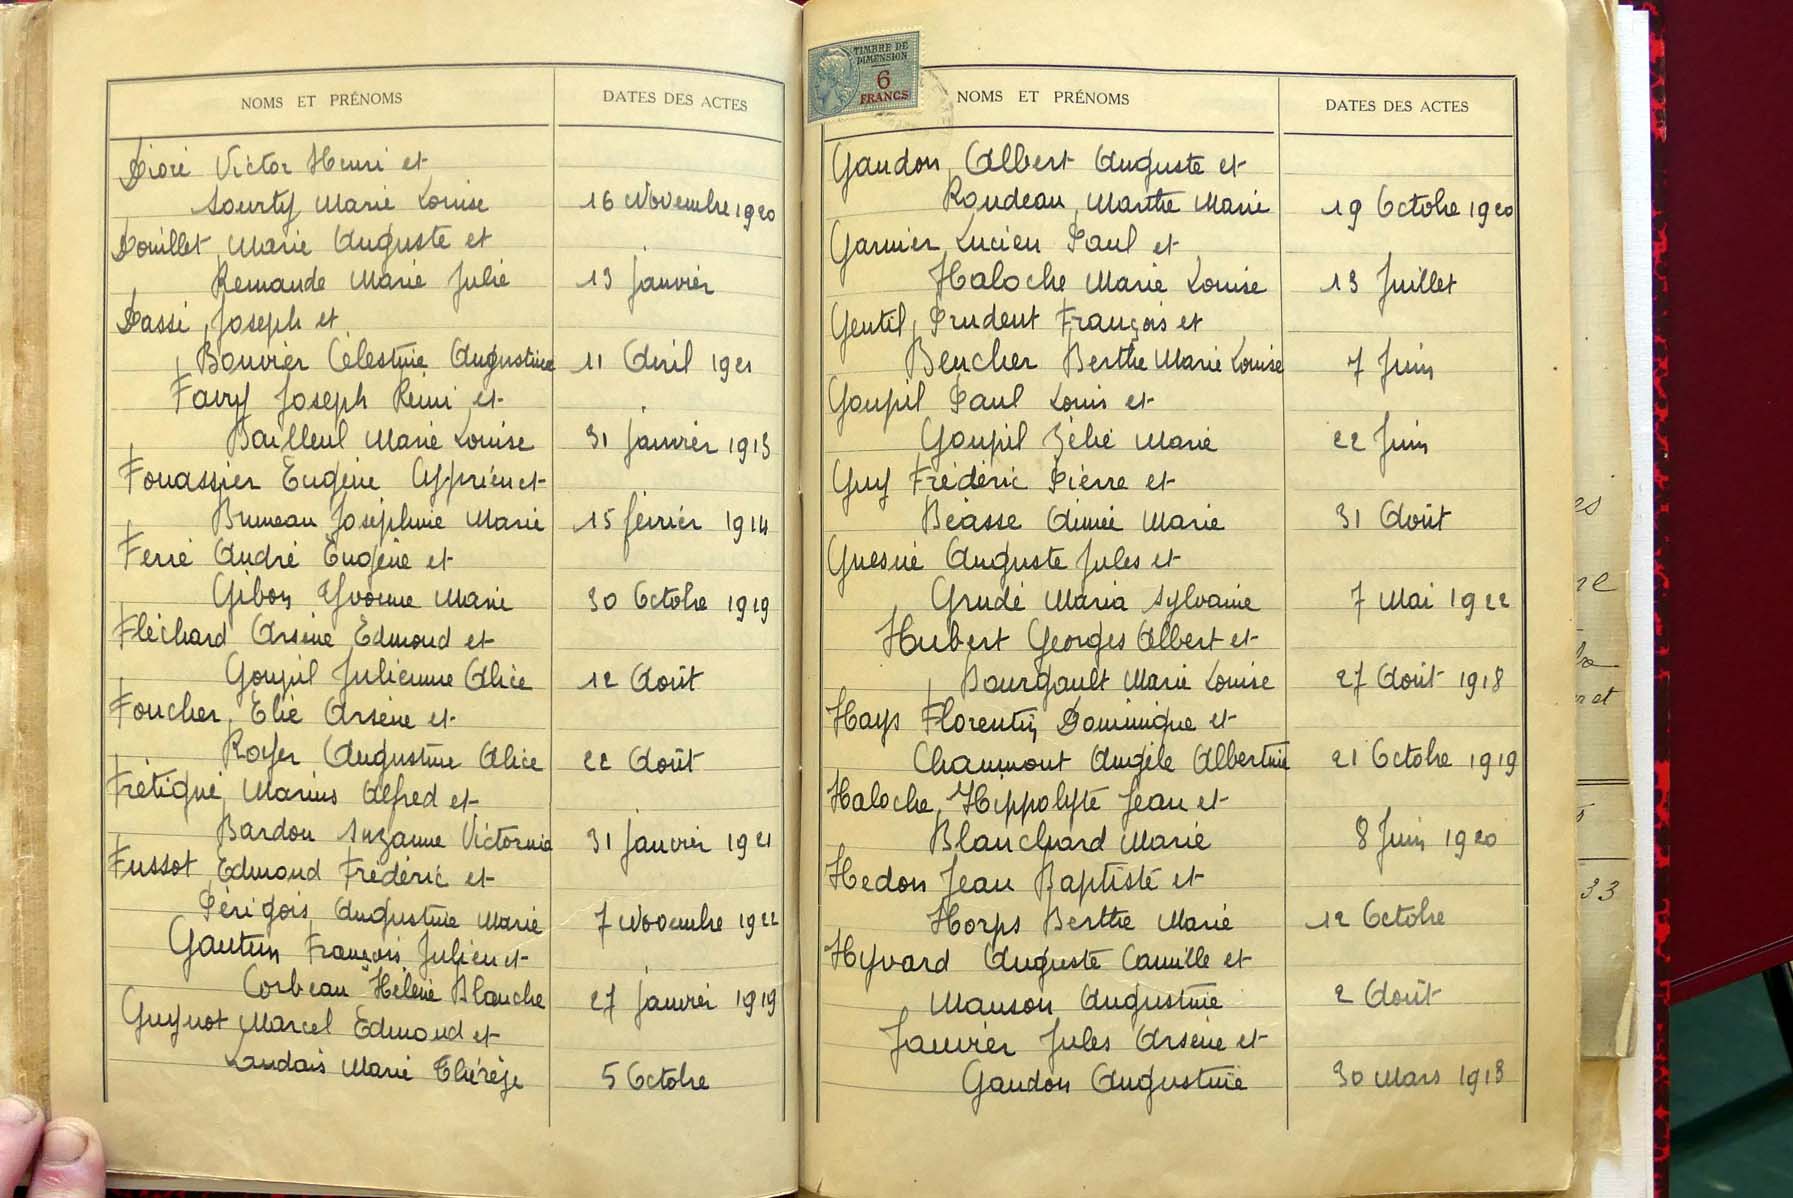 NOMS ET PRÉNOMS DATES DES ACTES
Dioré Victor Henri et
Sourty Marie Louise 16 Novembre 1920
Douillet, Marie Auguste et
Remande Marie Julie 13 janvier
Dassi, Joseph et
Bouvier Célestine Augustine 11 Avril 1921
Favry Joseph Rémi et
Bailleul Marie Louise 31 janvier 1913
Fouassier Eugène Cyprien et
Bruneau Joséphine Marie 15 février 1914
Ferré André Eugène et
Gibon Yvonne Marie 30 Octobre 1919
Fléchard Arsène Edmond et
Goupil Julienne Alice 12 Août
Foucher, Elie Arsène et
Royer Augustine Alice 22 Août
Frétigné, Marius Alfred et
Bardou Suzanne Victorine 31 janvier 1921
Fussot, Edmond Frédéric et
Périgois, Augustine Marie 7 Novembre 1922
Gautun François Julien et
Corbeau Hélène Blanche 27 janvier 1919
Guynot Marcel Edmond et
Landais Marie Thérèse 5 Octobre
TIMBRE DE
DIMENSION
6
FRANCS
NOMS ET PRÉNOMS DATES DES ACTES
Gaudon, Albert Auguste et
Rondeau, Marthe Marie 19 Octobre 1920
Garnier, Lucien Paul et
Haloche Marie Louise 13 Juillet
Gentil, Prudent François et
Beucher Berthe Marie Louise 7 Juin
Goupil Paul Louis et
Goupil Zélie Marie 22 Juin
Guy Frédéric Pierre et
Béasse Aimée Marie 31 Août
Guesné Auguste Jules et
Grudé Maria Sylvaine 7 Mai 1922
Hubert Georges Albert et
Bourgault Marie Louise 27 Août 1918
Hays Florentin Dominique et
Chaumont Angèle Albertine 21 Octobre 1919
Haloche, Hippolyte Jean et
Blanchard Marie 8 Juin 1920
Hedon Jean Baptiste et
Horps Berthe Marie 12 Octobre
Hyvard Auguste Camille et
Manson Augustine 2 Août
Janvier Jules Arsène et
Gaudon Augustine 30 Mars 1918
es
ne
et
33